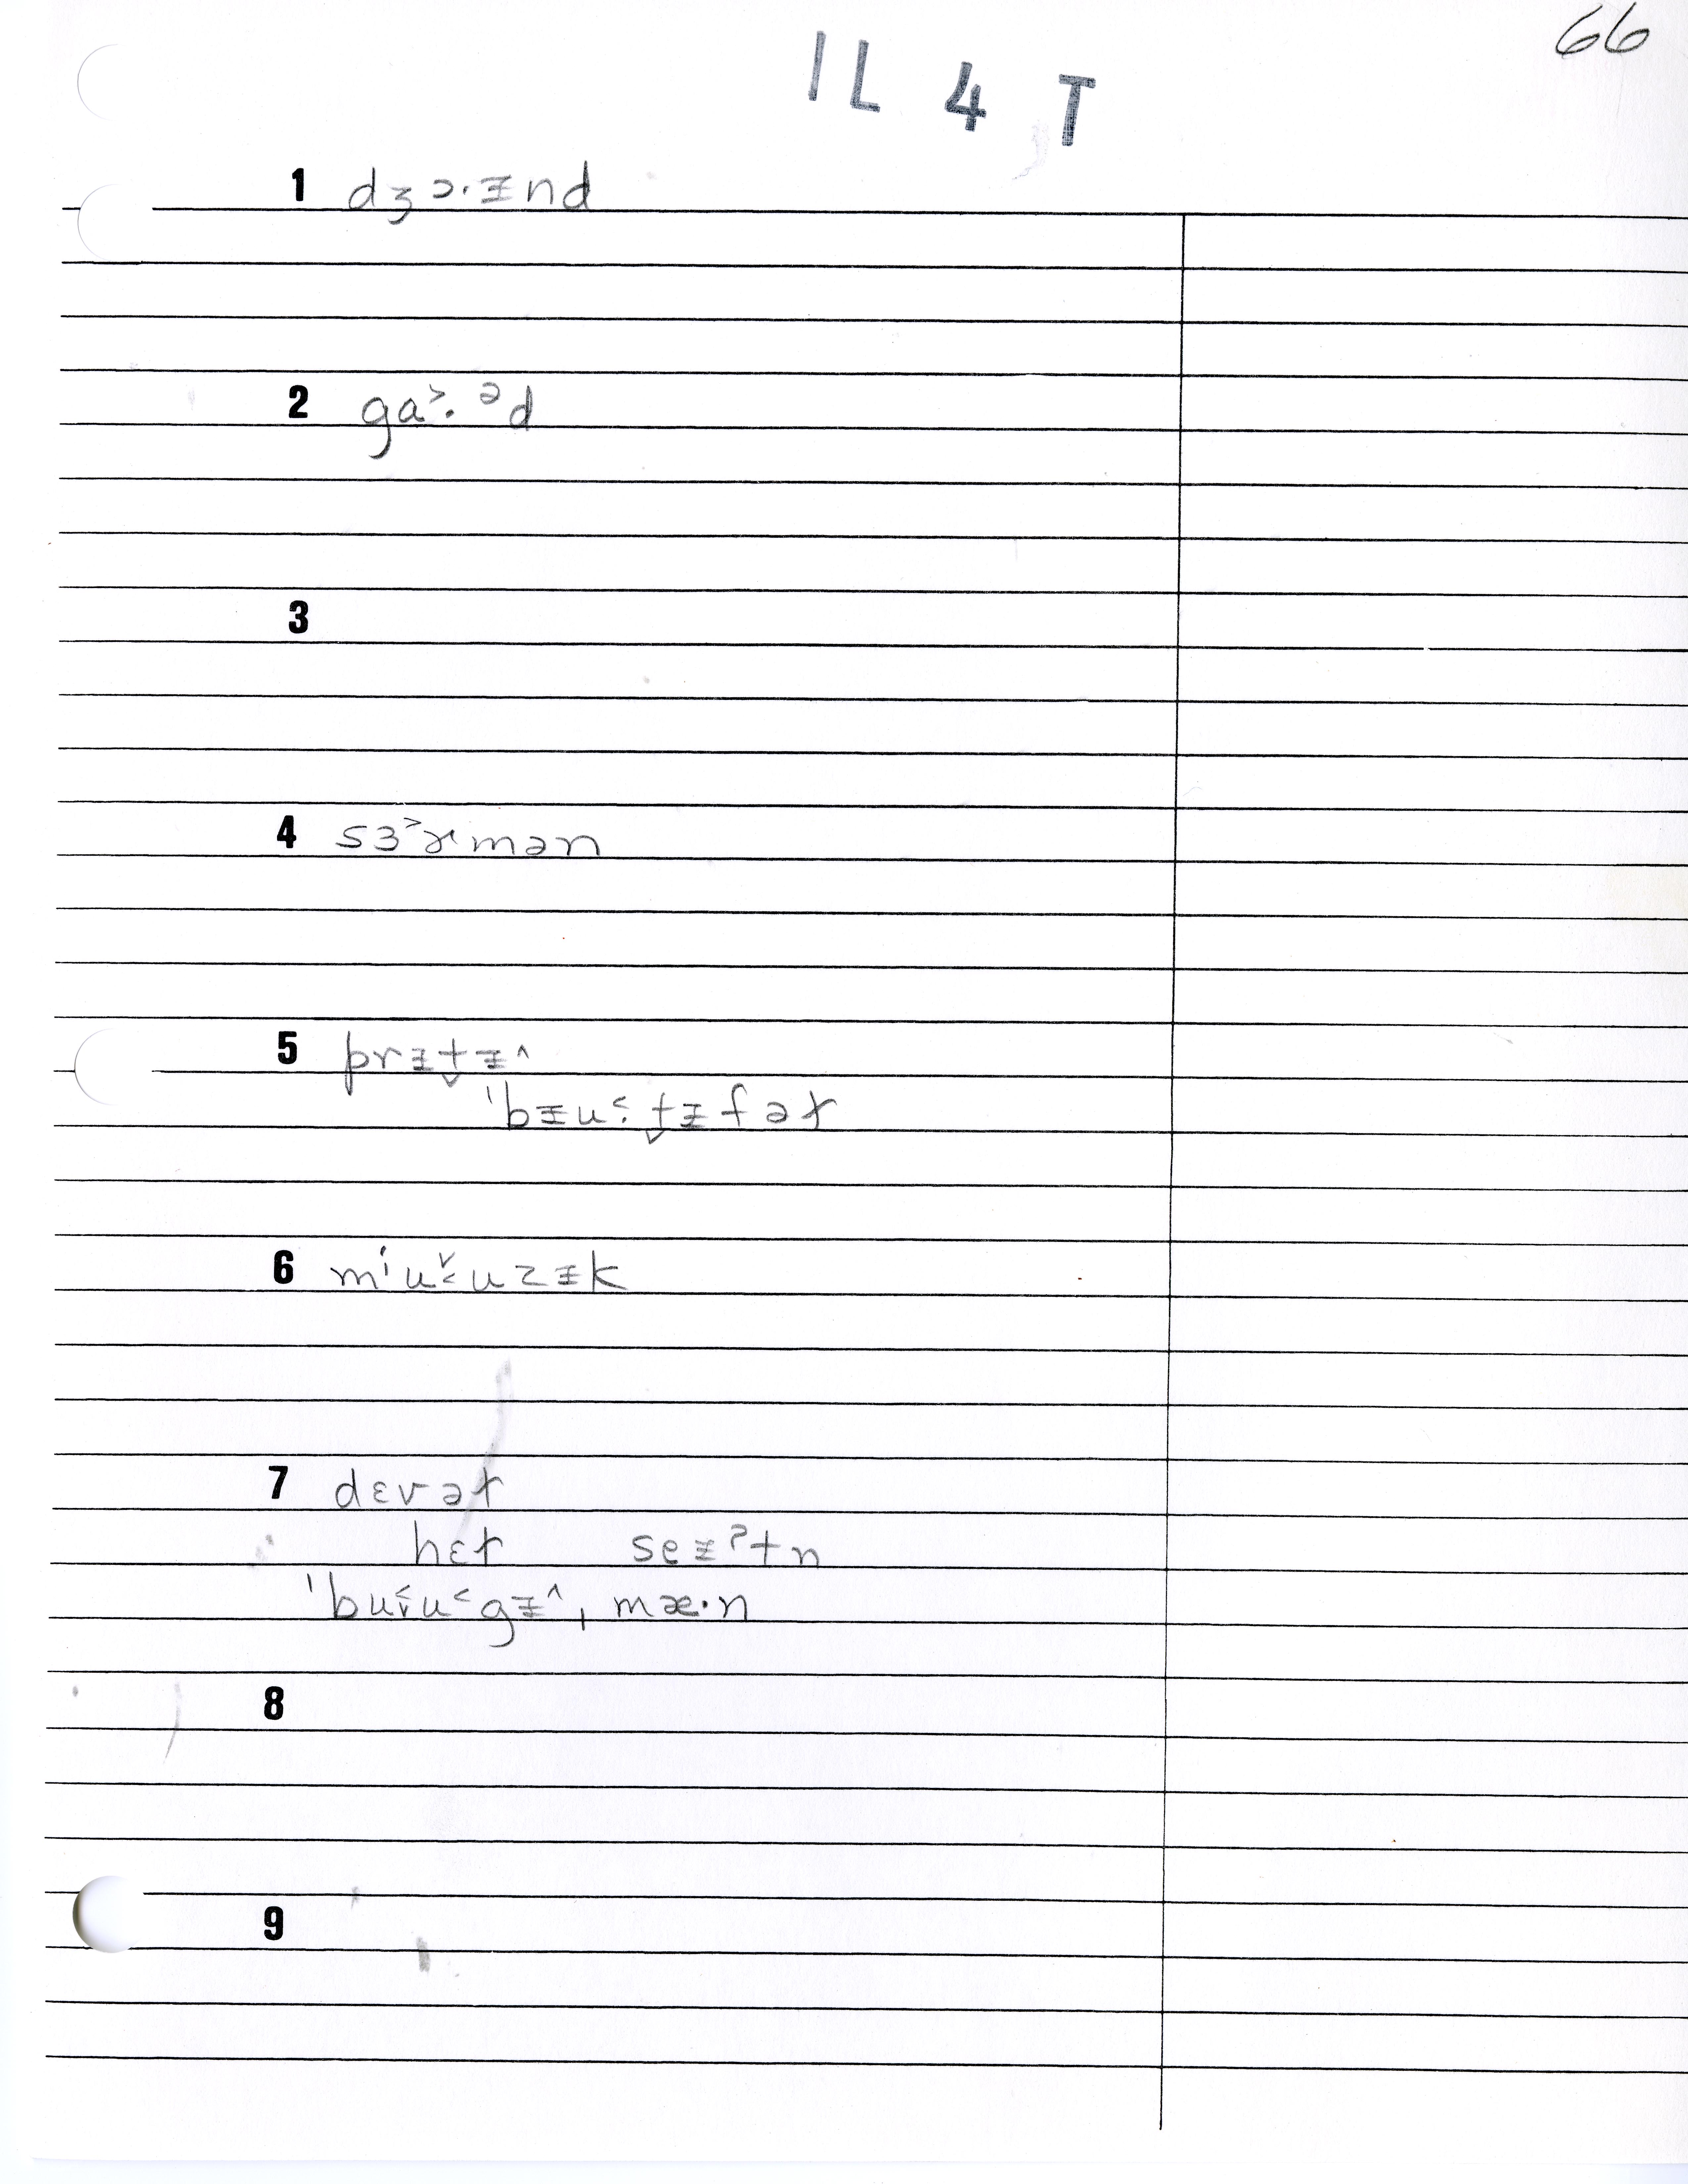 66
IL 4 T
1 dʒɔ·ᵻnd
2 ga˃· ᵊd
3
4 sɜ˃ɤmən
5 prᵻt̬ᵻ^
ˈbᵻu˂·t̬ᵻfəɫ
6 mⁱu˅˂uzᵻk
7 dɛvəɫ
hɛɫ seᵻˀtn
ˈbu˂˅u˂gᵻ^ˌmæ·n
8
9